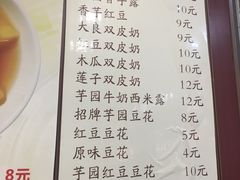 10元
香芋红豆 9元
大良双皮奶 9元
红豆双皮奶 10元
木瓜双皮奶 10元
莲子双皮奶 12元
芋园牛奶西米露 12元
招牌芋园豆花 8元
红豆豆花 5元
原味豆花 4元
芋园红豆豆花 10元
8元